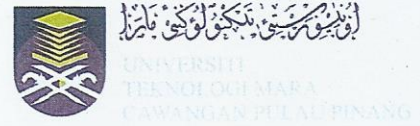 اونيۏرسيتي تيكنولوڬي مارا
UNIVERSITI
TEKNOLOGI MARA
CAWANGAN PULAU PINANG